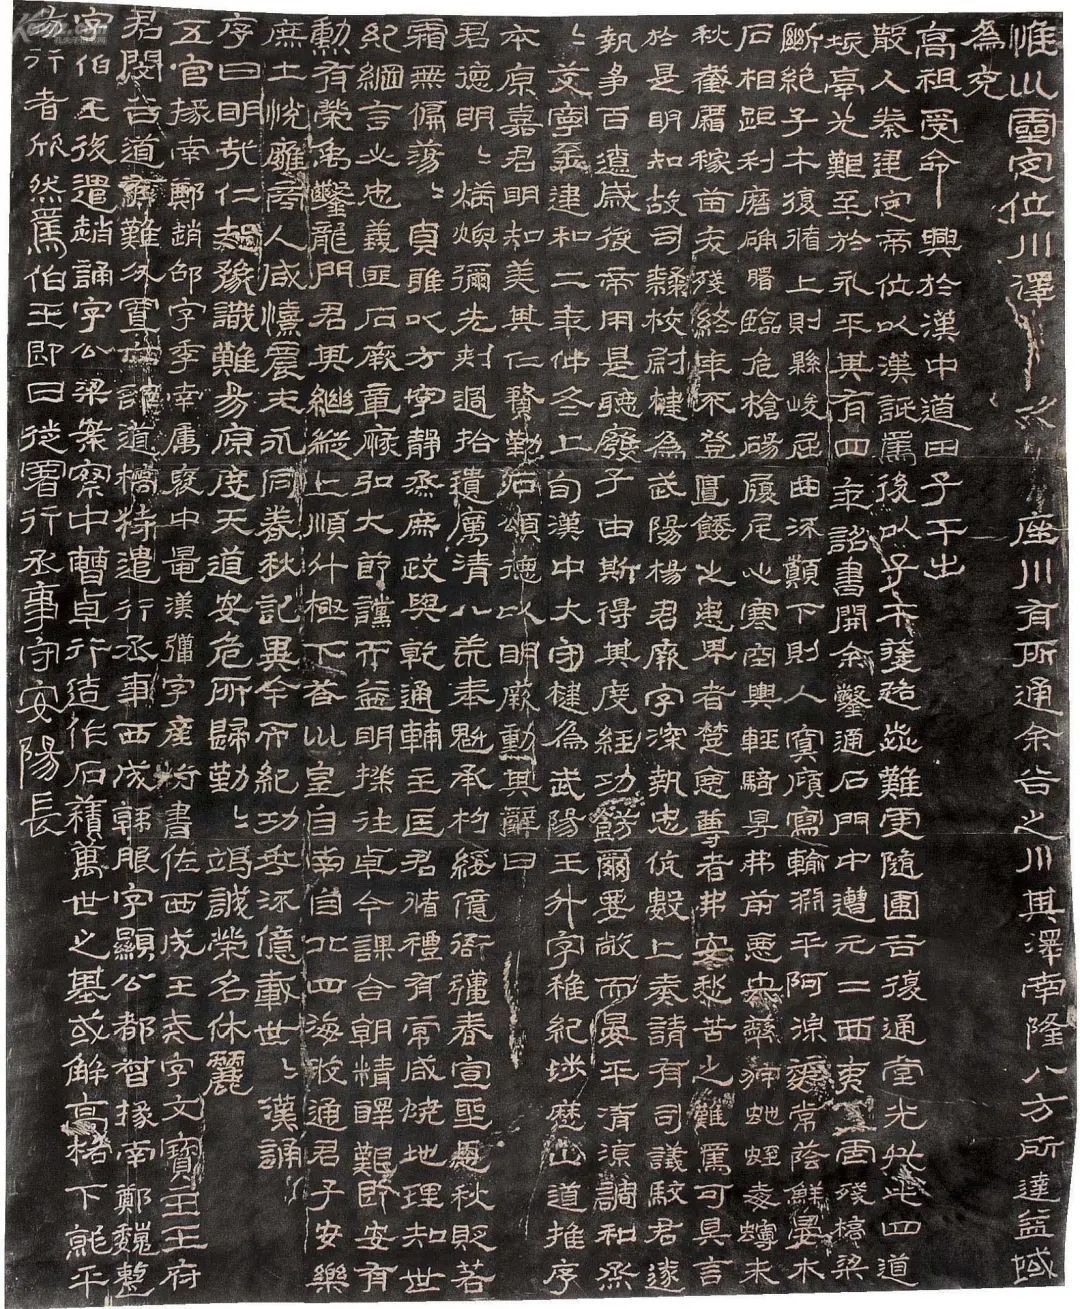 惟巛靈定位川澤股躬澤有所注川有所通余谷之川其澤南隆八方所達益域
為充
高祖受命興於漢中道由子午出
散入秦建定帝位以漢詆焉後以子午途路歰難更隨圍谷復通堂光凡此四道
垓鬲尤艱至於永平其有四年詔書開余鑿通石門中遭元二西夷虐殘橋梁
斷絕子午復循上則縣峻屈曲流顛下則入冥傾寫輸淵平阿湶泥常蔭鮮晏木
石相距利磨确磐臨危槍碭履尾心寒空輿輕騎遰㝵弗前惡虫𧑄狩虵蛭毒蟃未
秋截霜稼苗夭殘終年不登匱餧之患卑者楚惡尊者弗安愁苦之難焉可具言
於是明知故司隸校尉楗為武陽楊君厥字深執忠伉數上奏請有司議駮君遂
執爭百遼咸從帝用是聽廢子由斯得其度經功飭爾要敞而晏平清涼調和烝
〻艾寧至建和二年仲冬上旬漢中大守楗為武陽王升字稚紀涉歷山道推序
本原嘉君明知美其仁賢勒石頌德以明厥勳其辭曰
君德明〻炳煥彌光刺過拾遺厲清八荒奉魁承杓綏億衙彊春宣聖恩秋貶若
霜無偏蕩〻貞雅以方寧靜烝庶政與乾通輔主匡君循禮有常咸曉地理知世
紀綱言必忠義匪石厥章恢弘大節讜而益明揆往卓今謀合朝情醳艱即安有
勳有榮禹鑿龍門君其繼縱上順斗極下答巛皇自南自北四海攸通君子安樂
庶士悅雍商人咸憘農夫永同春秋記異今而紀功垂流億載世〻歎誦
序曰明哉仁知豫識難易原度天道安危所歸勤〻竭誠榮名休麗
五官掾南鄭趙邵字季南屬褒中晁漢彊字產伯書佐西成王戒字文寶主王府
君閔谷道危難分置六部道橋特遣行丞事西成韓朖字顯公都督掾南鄭魏整
字伯玉後遣趙誦字公梁案察中曹卓行造作石積萬世之基或解高格下就平
易行者欣然焉伯玉即日徙署行丞事守安陽長